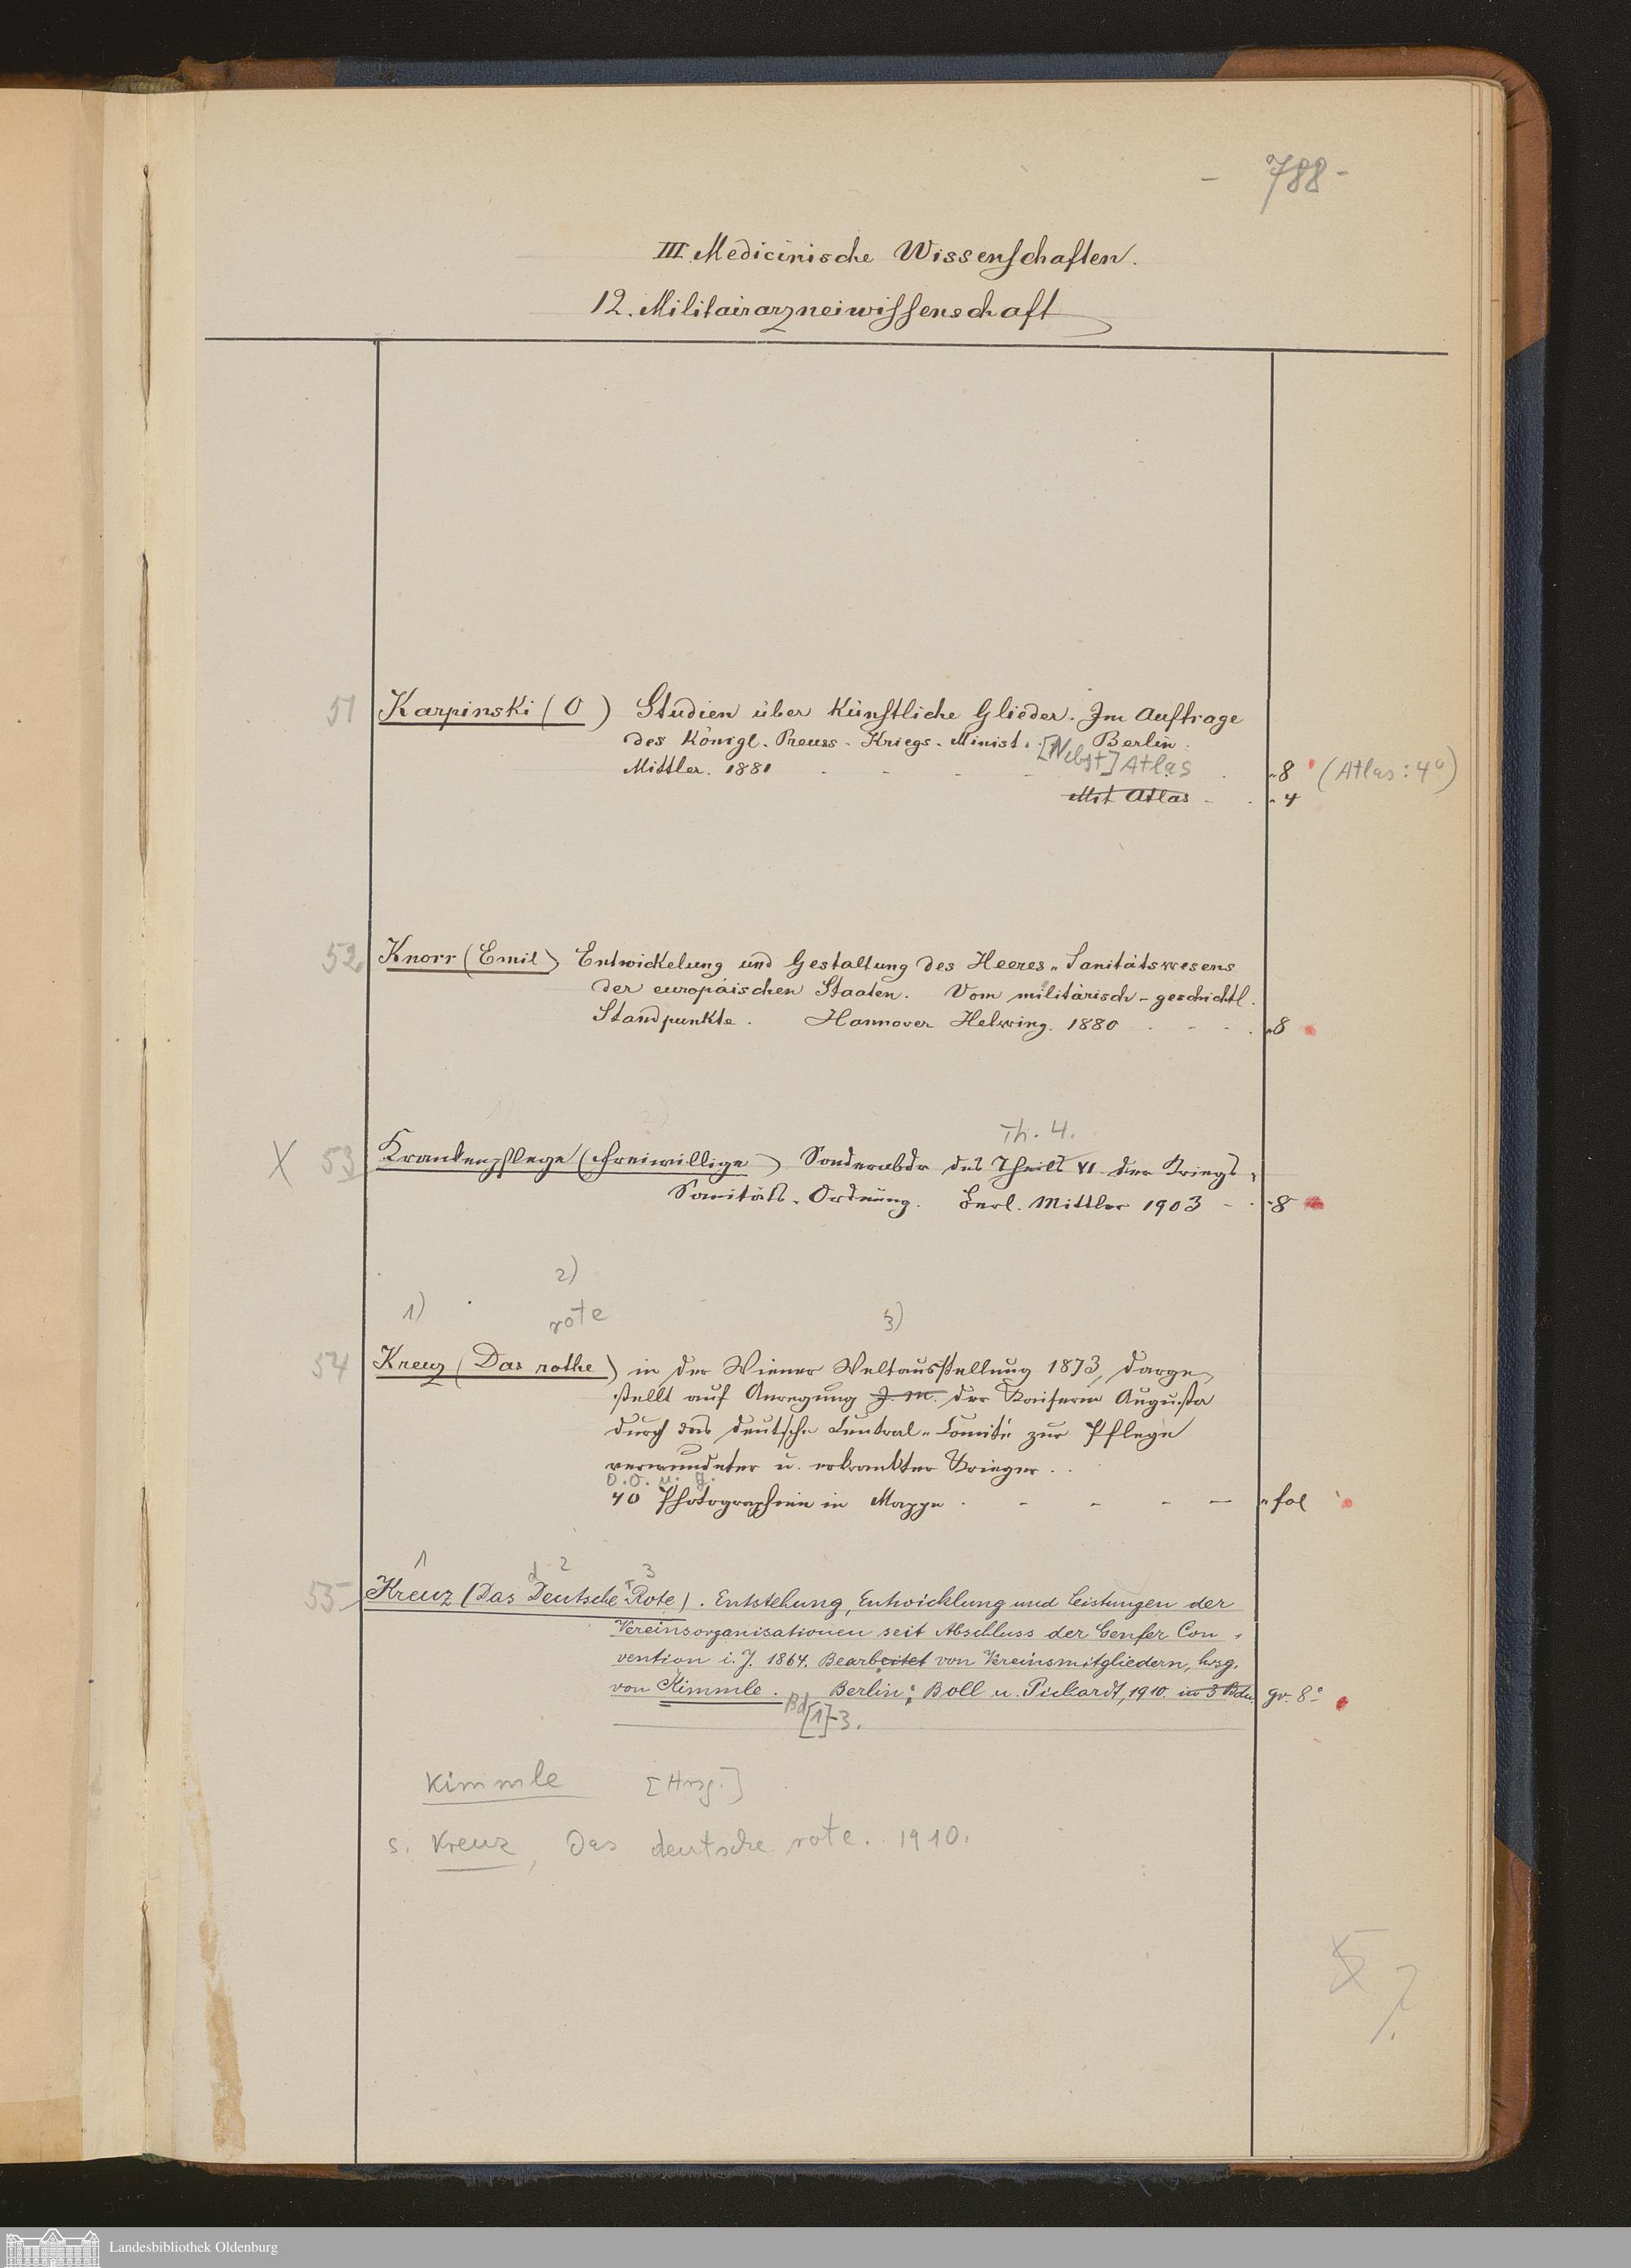 - 788 -
III Medicinische Wissenschaften.
12. Militairarzneiwissenschaft
51 Karpinski (O) Studien über Künstliche Glieder. Im Auftrage
des Königl. Preuss. Kriegs-Minist. Berlin.
[Nebst] Atlas
Mittler. 1881 8 (Atlas: 4°)
Mit Atlas 4
52 Knorr (Emil) Entwickelung und Gestaltung des Heeres-Sanitätswesens
der europäischen Staaten. Vom militärisch-geschichtl.
Standpunkte. Hannover Helwing. 1880 8
Th. 4.
X 53 Krankenpflege (Freiwillige) Sonderabdr des Theils VI der Kriegs-
Sanitäts-Ordnung. Berl. Mittler 1903 8
2)
1) rote 3)
54 Kreuz (Das rothe) in der Wiener Weltausstellung 1873, darge-
stellt auf Anregung J. M. der Kaiserin Augusta
durch das deutsche Central-Comité zur Pflege
verwundeter u. erkrankter Krieger.
o. O. u. J.
40 Photographien in Mappe fol
1 d 2 r 3
55 Kreuz (Das Deutsche Rote). Entstehung, Entwicklung und Leistungen der
Vereinsorganisationen seit Abschluss der Genfer Con-
vention i. J. 1864. Bearbeitet von Vereinsmitgliedern, hrsg.
von Kimmle. Berlin: Boll u. Pickardt, 1910. in 3 Bdn. gr. 8°
Bd [1]-3.
Kimmle [Hrsg.]
s. Kreuz, Das deutsche rote. 1910.
5
Landesbibliothek Oldenburg